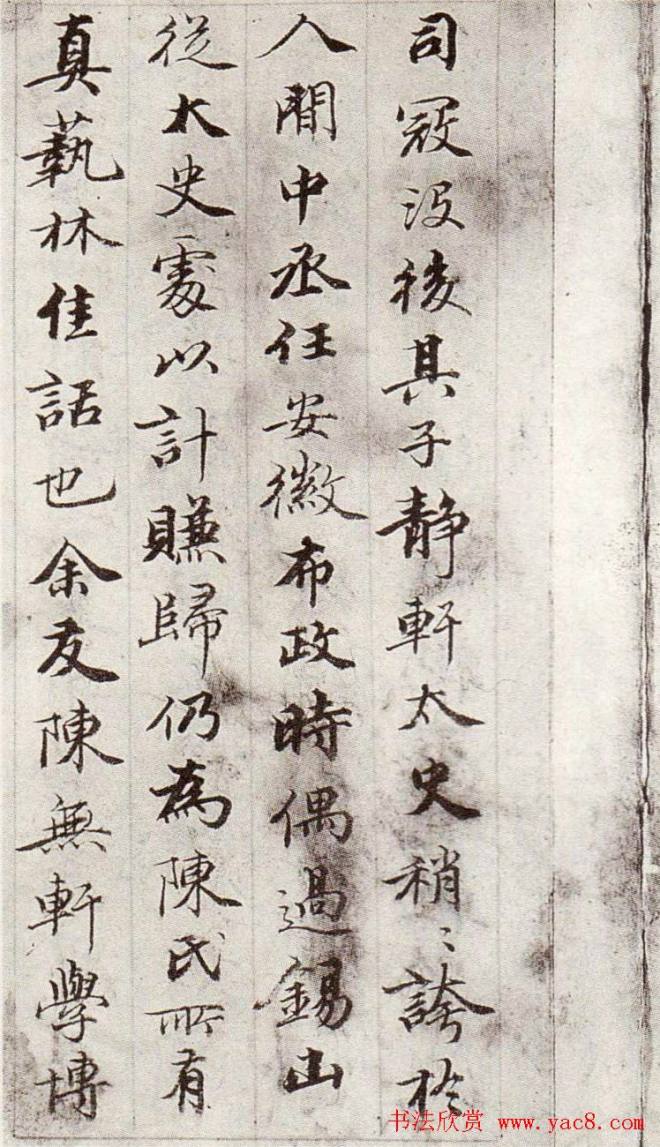 司寇没後其子静軒太史稍〻誇於
人間中丞任安徽布政時偶過錫山
從太史處以計賺歸仍為陳氏所有
真藝林佳話也余友陳無軒學博
书法欣赏 www.yac8.com